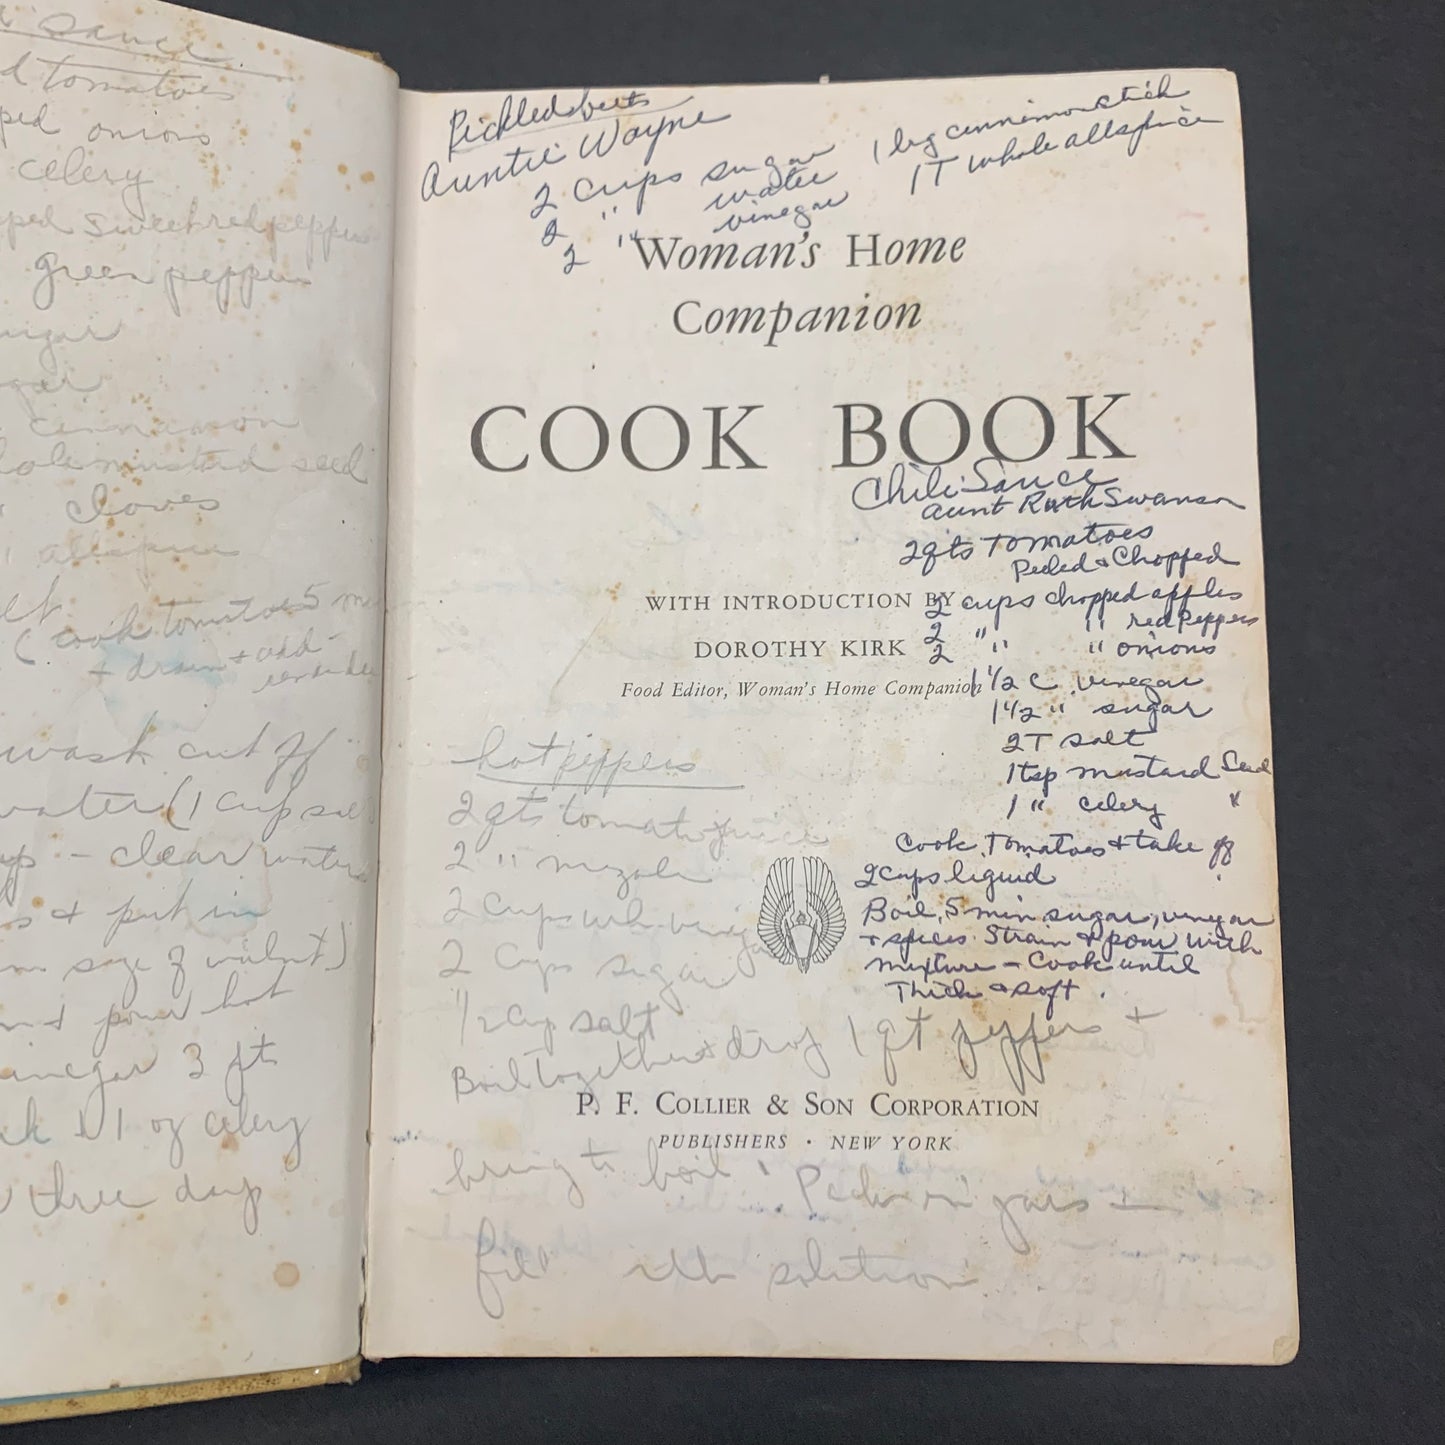 Sauce
tomatoes
ped onions
celery
pped sweet red peppers
green peppers
cinnamon
whole mustard seed
" cloves
" allspice
(cook tomatoes 5 m
+ drain + add
wash cut off
water (1 cup sal
- clear water
s + put in
size of walnut)
+ pour hot
vinegar 3 qts
1 oz celery
three day
Pickled beets
Auntie Wayne
2 cups sugar
2 " water
2 " vinegar
1 lrg cinnimon stick
1T whole allspice
Woman's Home
Companion
COOK BOOK
Chili Sauce
Aunt Ruth Swanson
2 qts Tomatoes
Peeled & Chopped
2 cups chopped apples
2 " " red Peppers
2 " " onions
1 1/2 C vinegar
1 1/2 " sugar
2T salt
1 tsp mustard Seed
1 " celery "
Cook Tomatoes + take off
2 cups liquid
Boil 5 min sugar, vinegar
+ spices Strain + pour with
mixture - Cook until
Thick & soft.
WITH INTRODUCTION BY
DOROTHY KIRK
Food Editor, Woman's Home Companion
hot peppers
2 qts tomato juice
2 " mazola
2 cups wh. vinegar
2 cups sugar
1/2 cup salt
Boil together + drop 1 qt peppers +
P. F. COLLIER & SON CORPORATION
PUBLISHERS · NEW YORK
bring to boil. Pack in jars +
fill with solution